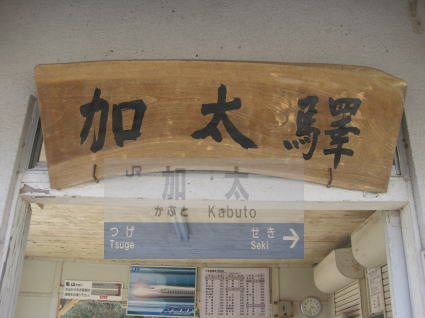 加太驛
JR 加太
かぶと Kabuto
つげ せき
Tsuge Seki